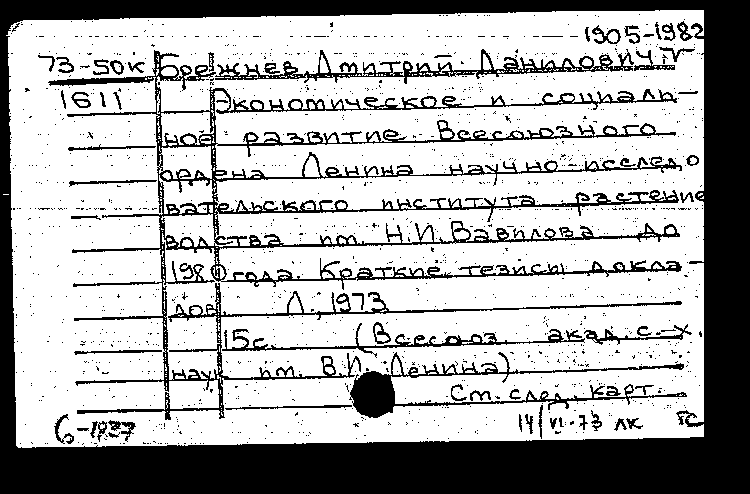 1905-1982
73-50к Брежнев, Дмитрий Данилович.
1611 Экономическое и социаль-
ное развитие Всесоюзного
ордена Ленина научно-исследо
вательского института растение
водства им. Н.И. Вавилова до
1980 года. Краткие тезисы докла-
дов. Л., 1973
15с. (Всесоюз. акад. с.-х.
наук им. В.И. Ленина)
См. след. карт.
6-1937 14/VI-73 лк